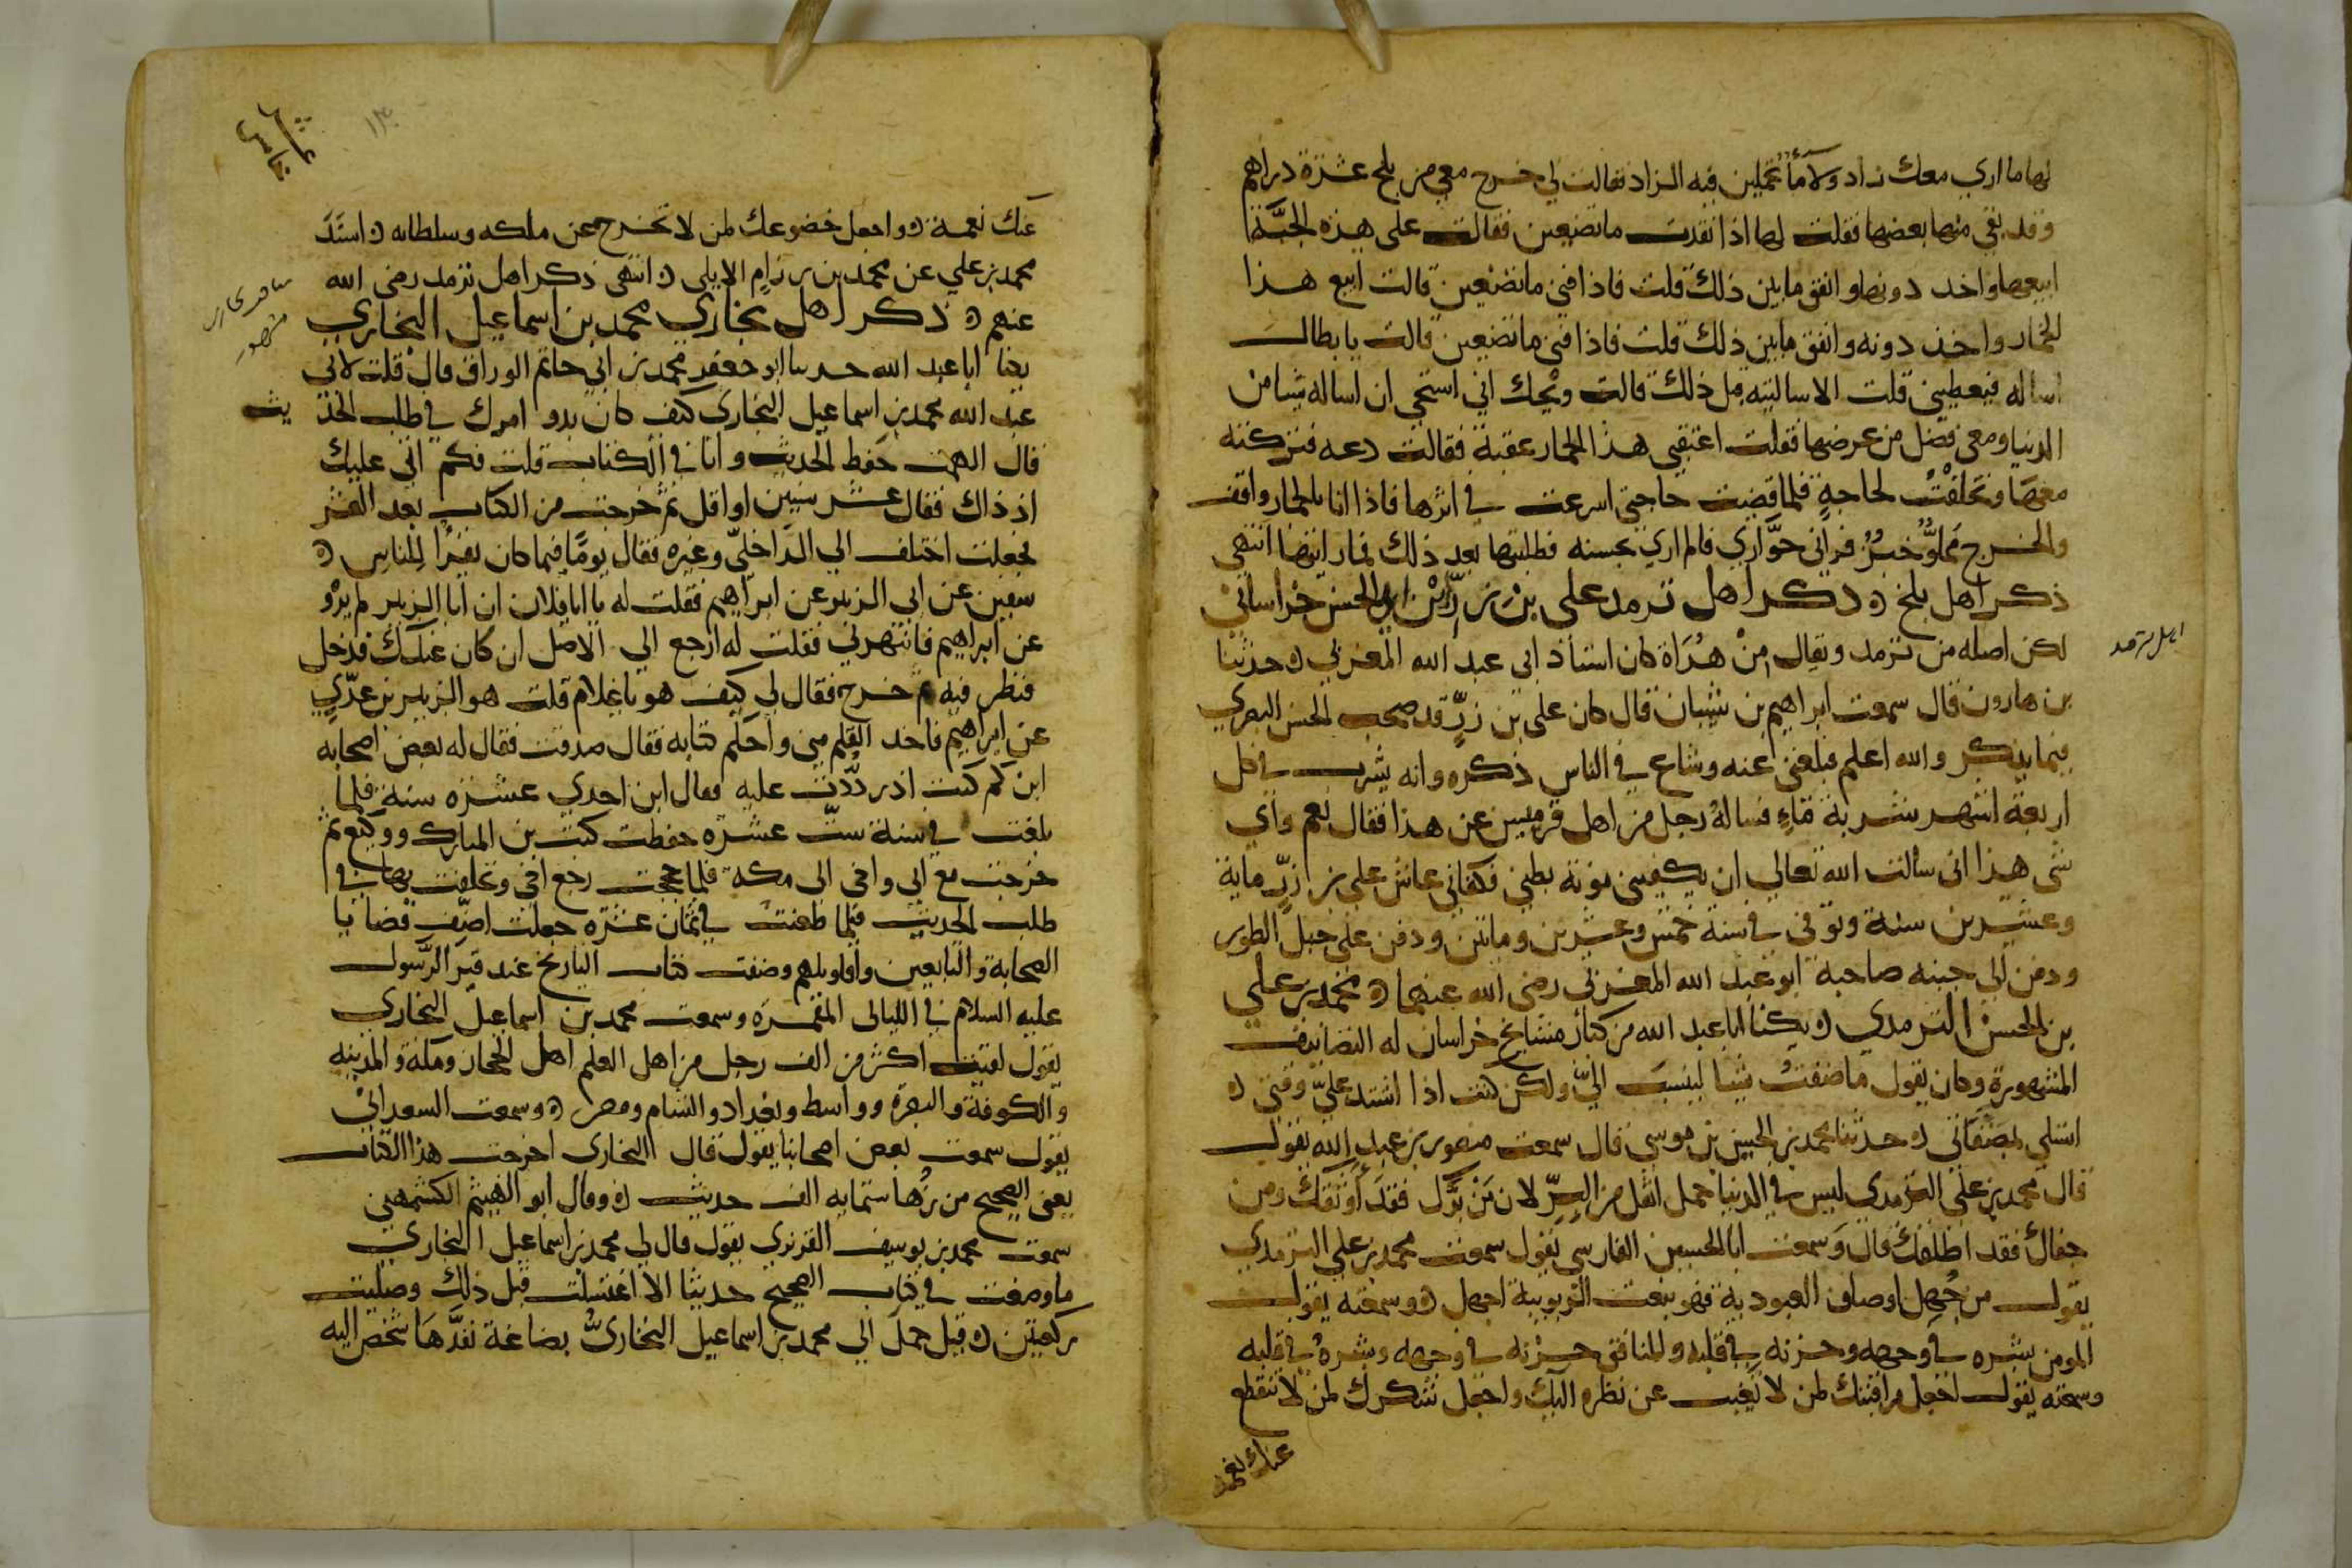 لها ما اري معك زاد ولا ما تحملين فيه الزاد فقالت لي خرج معي من بلخ عشرة دراهم
وقد بقي منها بعضها فقلت لها اذا نفدت ما تصنعين فقالت على هذه الجبة
ابيعها واخذ دونها وانفق ما بين ذلك قلت فاذا فني ما تصنعين قالت ابيع هذا
الخمار واخذ دونه وانفق ما بين ذلك قلت فاذا فني ما تصنعين قالت يا بطال
اساله فيعطيني قلت الا سالتيه قبل ذلك قالت ويحك اني استحي ان اساله شيا من
الدنيا ومعي فضل من عرضها فقلت اعتقبي هذا الحمار عقبة فقالت دعه فتركته
معها وتخلفت لحاجة فلما قضيت حاجتي اسرعت في اثرها فاذا انا بالحمار واقف
والخرج مملو خبز فراني حواري فلم اري بحسنه فطلبتها بعد ذلك فما رايتها انتهى
ذكر اهل بلخ ذكر اهل ترمد علي بن رزين ابو الحسن خراساني
لكن اصله من ترمد ويقال من هراة كان استاذ ابي عبد الله المغربي حدثنا
بن هارون قال سمعت ابراهيم بن شيبان قال كان علي بن رزين قد صحب الحسن البصري
فيما يذكر والله اعلم فبلغني عنه وشاع في الناس ذكره وانه يشرب في كل
اربعة اشهر شربة ماء فساله رجل من اهل قرميسين عن هذا فقال نعم واي
شي هذا اني سالت الله تعالى ان يكفيني مونة بطني فكفاني عاش علي بن رزين ماية
وعشرين سنة وتوفى في سنة خمس وعشرين وماتين ودفن على جبل الطور
ودفن الى جنبه صاحبه ابو عبد الله المغربي رضى الله عنهما محمد بن علي
بن الحسن الترمدي يكنا ابا عبد الله من كبار مشايخ خراسان له التصانيف
المشهورة وكان يقول ما صنفت شيا لينسب الي ولكن كنت اذا اشتد علي وقتي
اتسلى بمصنفاتي حدثنا محمد بن الحسين بن موسى قال سمعت منصور بن عبد الله يقول
قال محمد بن علي الترمدي ليس في الدنيا حمل اثقل من البر لان من برك فقد اوثقك ومن
جفاك فقد اطلقك قال وسمعت ابا الحسين الفارسي يقول سمعت محمد بن علي الترمدي
يقول من جهل اوصاف العبودية فهو بنعت الربوبية اجهل وسمعته يقول
المومن بشره في وجهه وحزنه في قلبه والمنافق حزنه في وجهه وبشره في قلبه
وسمعته يقول اجعل مراقبتك لمن لا يغيب عن نظره اليك واجعل شكرك لمن لا تنقطع
عنك نعمه
اهل ترمد
عاشر
خامس
١٣٠
عنك نعمة واجعل خضوعك لمن لا تخرج عن ملكه وسلطانه اسند
محمد بن علي عن محمد بن رزام الايلي انتهى ذكر اهل ترمد رضى الله
عنهم ذكر اهل بخاري محمد بن اسماعيل البخاري
يكنا ابا عبد الله حدثنا ابو جعفر محمد بن ابي حاتم الوراق قال قلت لابي
عبد الله محمد بن اسماعيل البخاري كيف كان بدو امرك في طلب الحديث
قال الهمت حفظ الحديث وانا في الكتاب قلت فكم اتى عليك
اذ ذاك فقال عشر سنين او اقل ثم خرجت من الكتاب بعد العشر
فجعلت اختلف الي الداخلي وغيره فقال يوما فيما كان يقرا للناس
سفين عن ابي الزبير عن ابراهيم فقلت له يا ابا فلان ان ابا الزبير لم يرو
عن ابراهيم فانتهرني فقلت له ارجع الي الاصل ان كان عندك فدخل
فنظر فيه ثم خرج فقال لي كيف هو يا غلام قلت هو الزبير بن عدي
عن ابراهيم فاخذ القلم مني واحكم كتابه فقال صدقت فقال له بعض اصحابه
ابن كم كنت اذ رددت عليه فقال ابن احدي عشرة سنة فلما
بلغت في سنة ست عشره حفظت كتب بن المبارك ووكيع ثم
خرجت مع ابي واخي الى مكة فلما حججت رجع اخي وتخلفت بها في
طلب الحديث فلما طعنت في ثمان عشره جعلت اصنف قضايا
الصحابة والتابعين واقاويلهم وصنفت كتاب التاريخ عند قبر الرسول
عليه السلام في الليالى المقمره وسمعت محمد بن اسماعيل البخاري
يقول لقيت اكثر من الف رجل من اهل العلم اهل الحجاز ومكة والمدينه
والكوفة والبصرة وواسط وبغداد والشام ومصر وسمعت السعداني
يقول سمعت بعض اصحابنا يقول قال البخاري اخرجت هذا الكتاب
يعني الصحيح من زها ستمايه الف حديث وقال ابو الهيثم الكشمهيني
سمعت محمد بن يوسف الفربري يقول قال لي محمد بن اسماعيل البخاري
ما وضعت في كتاب الصحيح حديثا الا اغتسلت قبل ذلك وصليت
ركعتين قيل حمل الي محمد بن اسماعيل البخاري بضاعة نفدها شخص اليه